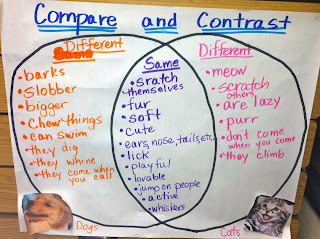 Compare and Contrast
Different
Same
Different
• barks
• Slobber
• bigger
• Chew things
• can swim
• they dig
• they whine
• they come when
you call
• sratch
themselves
• fur
• soft
• cute
• ears, nose, tails, etc.
• lick
• playful
• lovable
• jump on people
• active
• whiskers
• meow
• scratch
others
• are lazy
• purr
• don't come
when you come
• they climb
Dogs
Cats